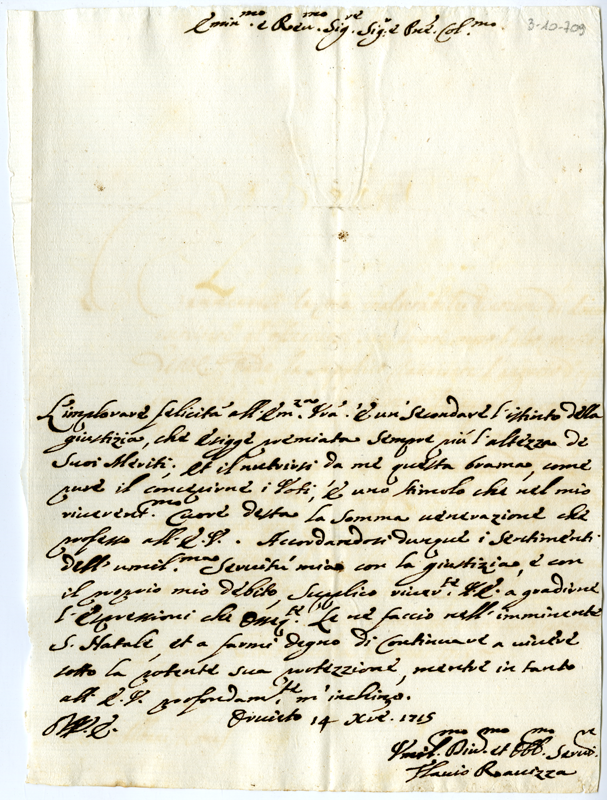 Emin.mo e Rev.mo Sig.re Sig.re e Pne. Col.mo
3-10-709
L'implorare felicità all'Em.za Vra. è un secondare l'istinto della
giustizia, che esigge premiata sempre più l'altezza de
Suoi Meriti; et il nutrirsi da me questa brama, come
pure il concepirne i Voti, è uno stimolo che nel mio
riverent.mo Cuore desta la somma venerazione che
professo all'E.V. Accordandosi dunque i sentimenti
dell'umil.ma Servitù mia con la giustizia, e con
il proprio mio debito, Supplico river.te V.E. a gradirne
l'espressioni che osseq.te Le ne faccio nell'imminente
S. Natale, et a farmi degno di Continuare a vivere
sotto la potente sua protezzione, mentre in tanto
all'E.V. profondam.te m'inchino.
Orvieto 14 Xbre. 1715
Vmil.mo Div.mo et Obbl.mo Serv.re
Flavio Ravizza